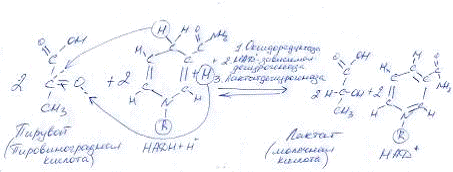 1. Оксидоредуктаза
2. НАД-зависимая
дегидрогеназа
3. Лактатдегидрогеназа
2 C=O + 2
CH₃
2 H-C-OH + 2
CH₃
Пируват
(Пировиноградная
кислота)
НАДН + H⁺
Лактат
(молочная
кислота)
НАД⁺